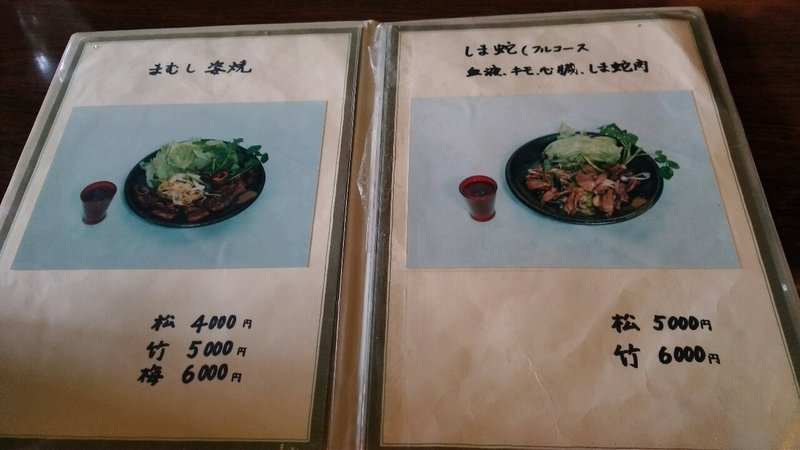 まむし 姿焼
松 4000円
竹 5000円
梅 6000円
しま蛇(フルコース
血液、キモ、心臓、しま蛇肉
松 5000円
竹 6000円